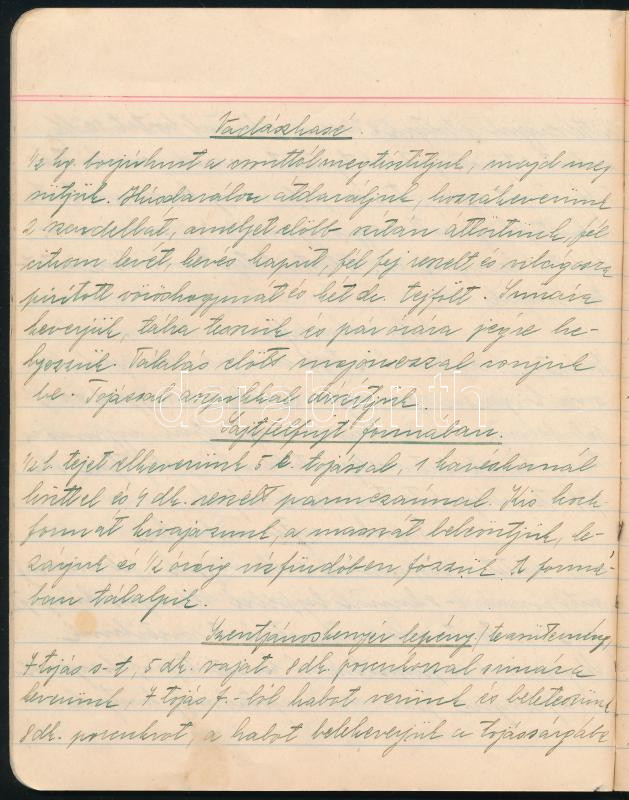 Vadászhasé.
½ kg. borjúhust a zsirtól megtisztitjuk, majd meg
sütjük. Húsdarálón átdaráljuk, hozzákeverünk
2 szardellát, amelyet előbb szitán áttörtünk, fél
citrom levét, kevés kaprit, fél fej reszelt és világossra
piritott vöröshagymát és két dc. tejfölt. Simára
keverjük, tálra tesszük és pár órára jégre he-
lyezzük. Tálalás előtt majonézzel vonjuk
be. Tojással, aszpikkal diszitjük.
darabanth
Sajtfelfujt formában.
½ l. tejet elkeverünk 5 e. tojással, 1 kávéskanál
liszttel és 4 dk. reszelt parmezánnal. Kis koch
formát kivajazunk, a masszát beleöntjük, le-
zárjuk és ½ óráig vizfürdőben főzzük. A formá-
ban tálaljuk.
Szentjánoskenyér lepény, teasütemény,
7 tojás s-t, 5 dk. vajat, 8 dk. porcukorral simára
keverünk, 7 tojás f.-ből habot verünk és beleteszünk
8 dk. porcukrot, a habot belekeverjük a tojássárgába